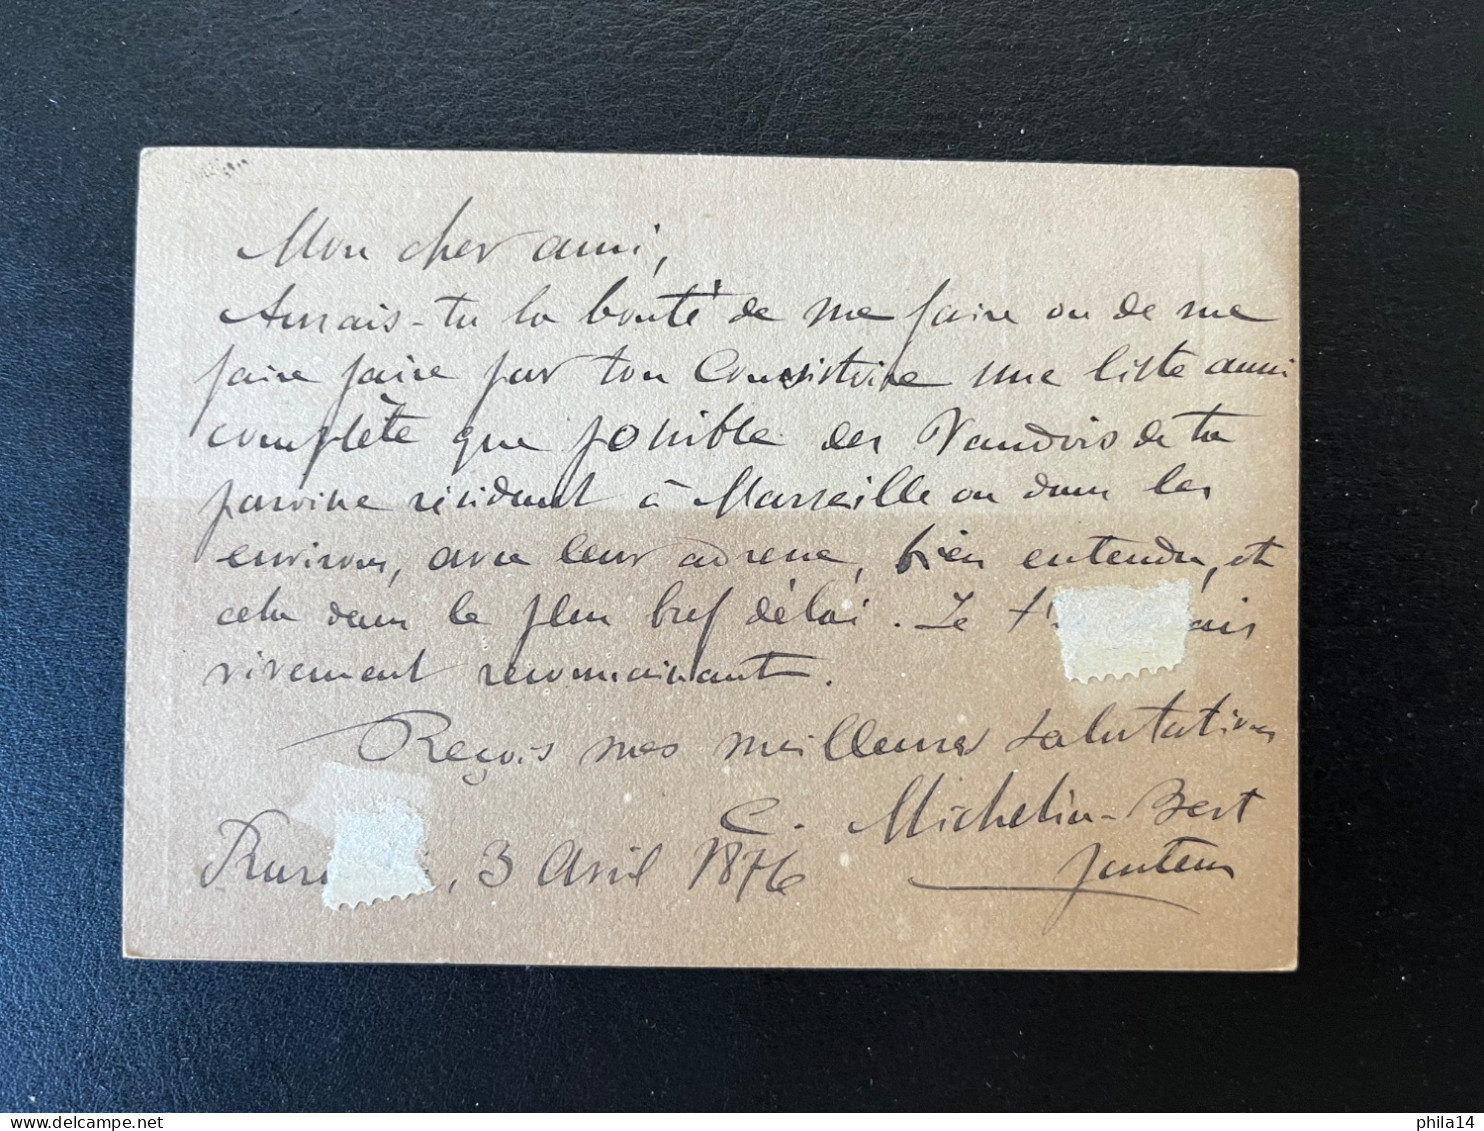 Mon cher ami,
Aurais-tu la bonté de me faire ou de me
faire faire par ton Consistoire une liste aussi
complète que possible des Vaudois de ta
paroisse résidant à Marseille ou dans les
environs, avec leur adresse, bien entendu, et
cela dans le plus bref délai. Je t'
vivement reconnaissante.
Reçois mes meilleures salutations
C. Michelin-Bert
pasteur
3 Avril 1876
phila14